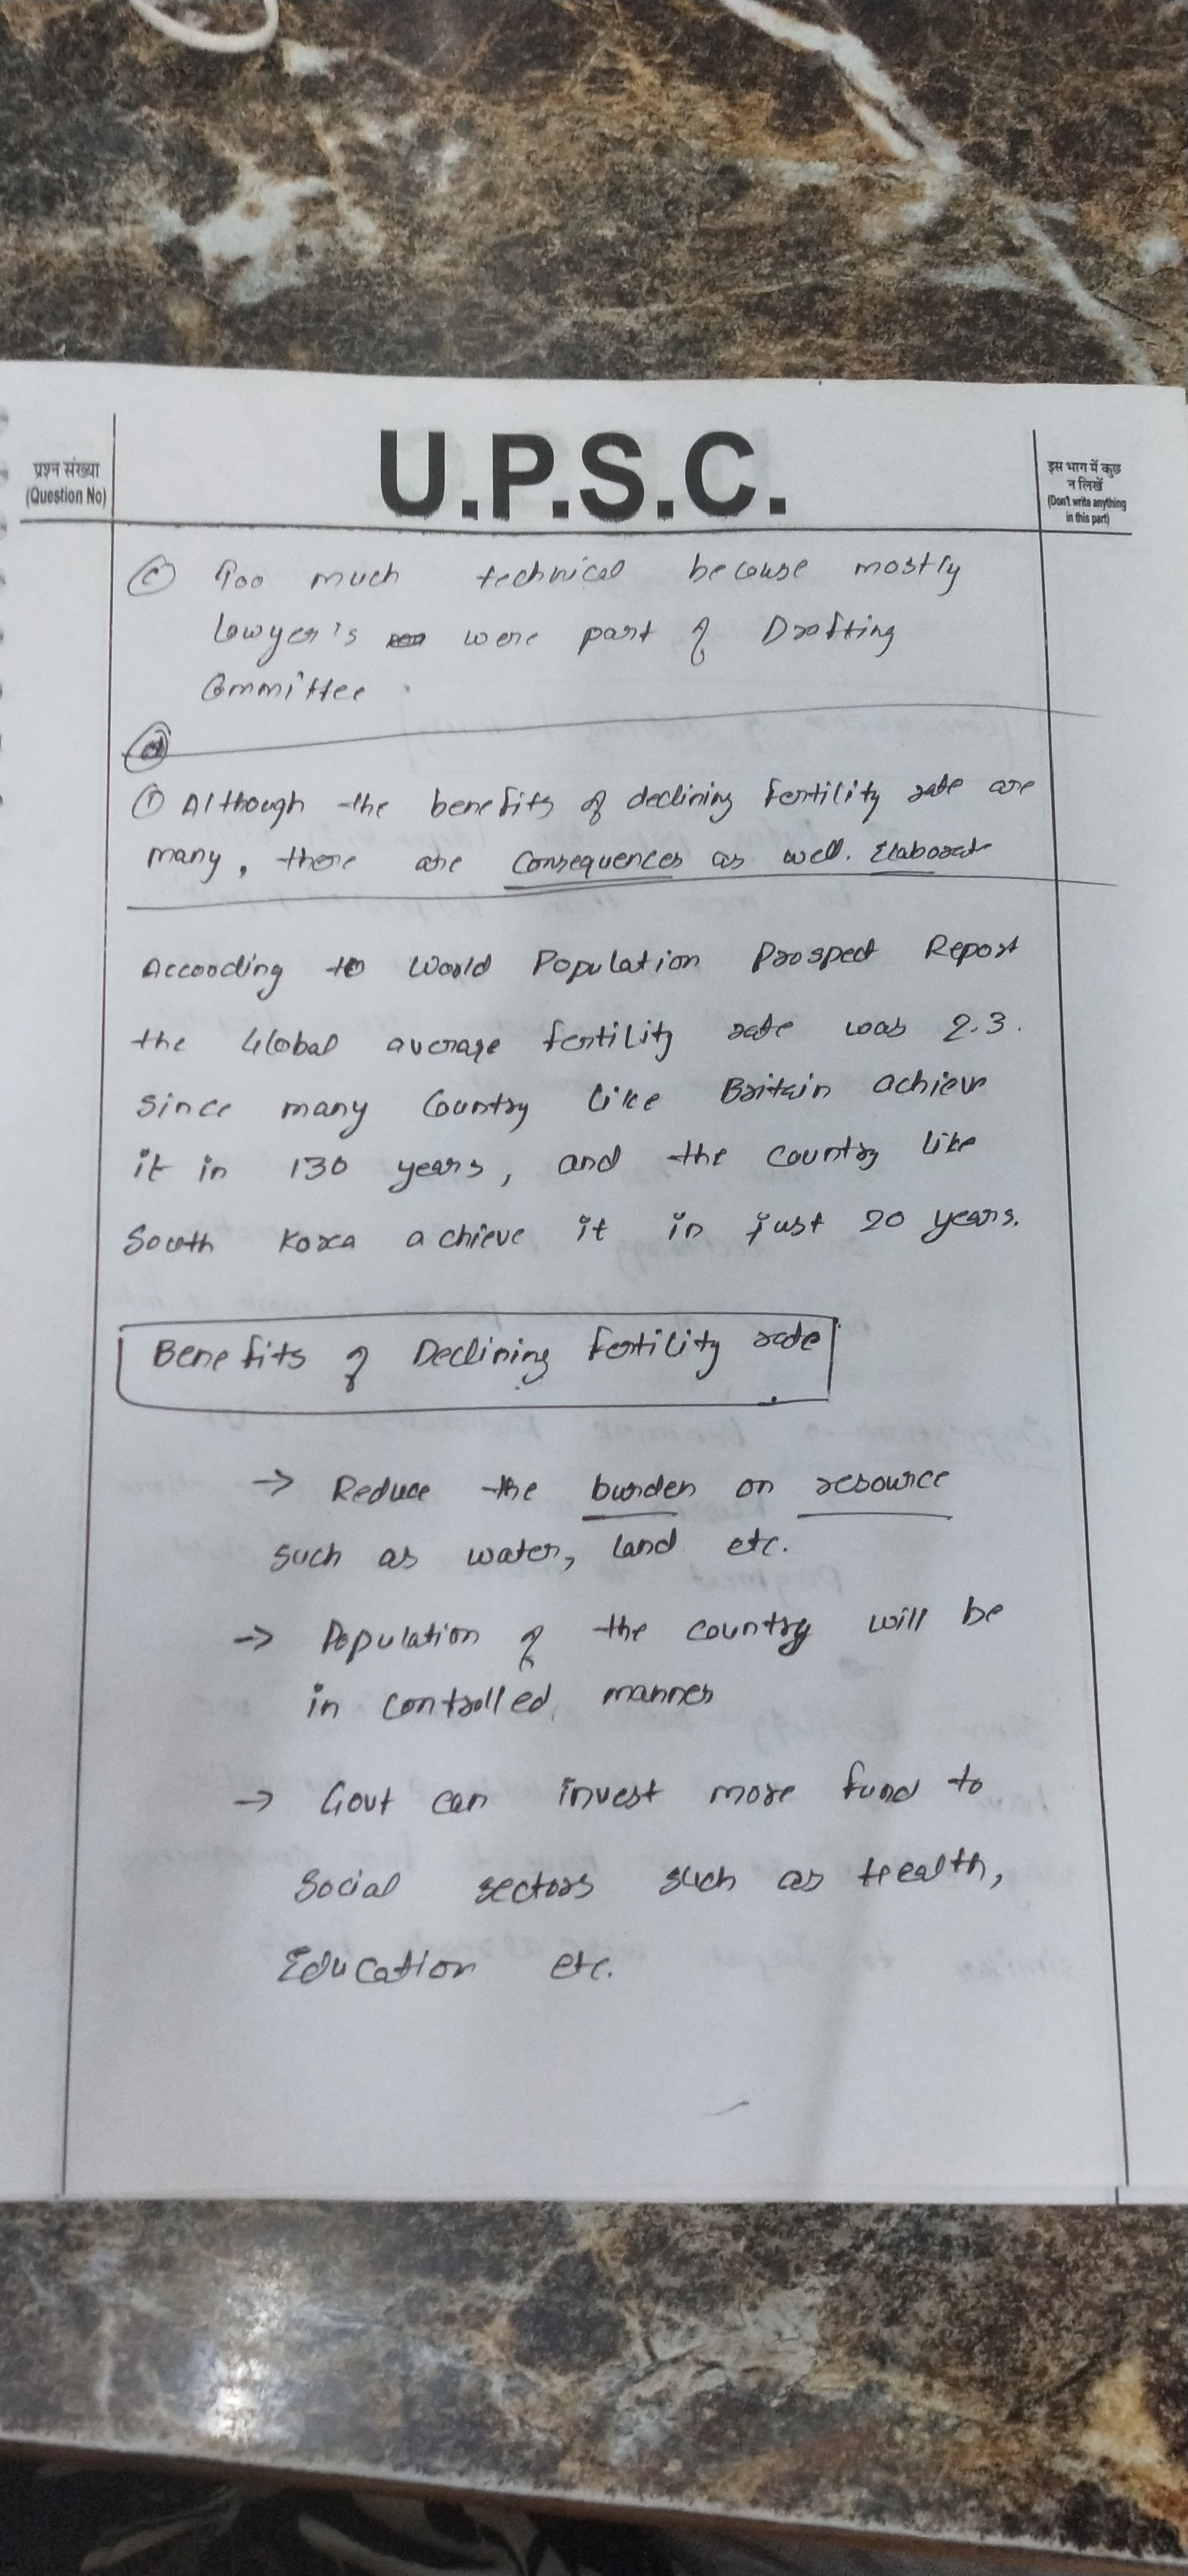 प्रश्न संख्या
(Question No)
U.P.S.C.
इस भाग में कुछ
न लिखें
(Don't write anything
in this part)
(C) Too much technical because mostly
Lawyer's were part of Drafting
Committee.
(d)
(1) Although the benefits of declining fertility rate are
many, there are consequences as well. Elaborate
According to World Population Prospect Report
the Global average fertility rate was 2.3.
Since many Country like Britain achieve
it in 130 years, and the country like
South Korea achieve it in just 20 years.
Benefits of Declining fertility rate
→ Reduce the burden on resource
such as water, land etc.
→ Population of the country will be
in controlled manner
→ Govt can invest more fund to
Social sectors such as Health,
Education etc.